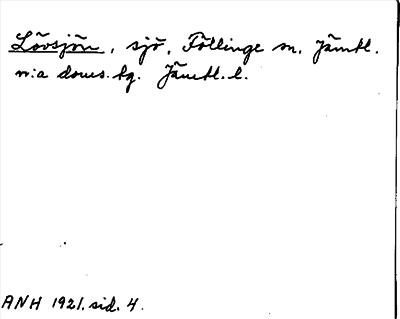 Lövsjön, sjö, Föllinge sn. Jämtl.
n:a doms. tg. Jämtl. l.
ANH 1921. sid. 4.